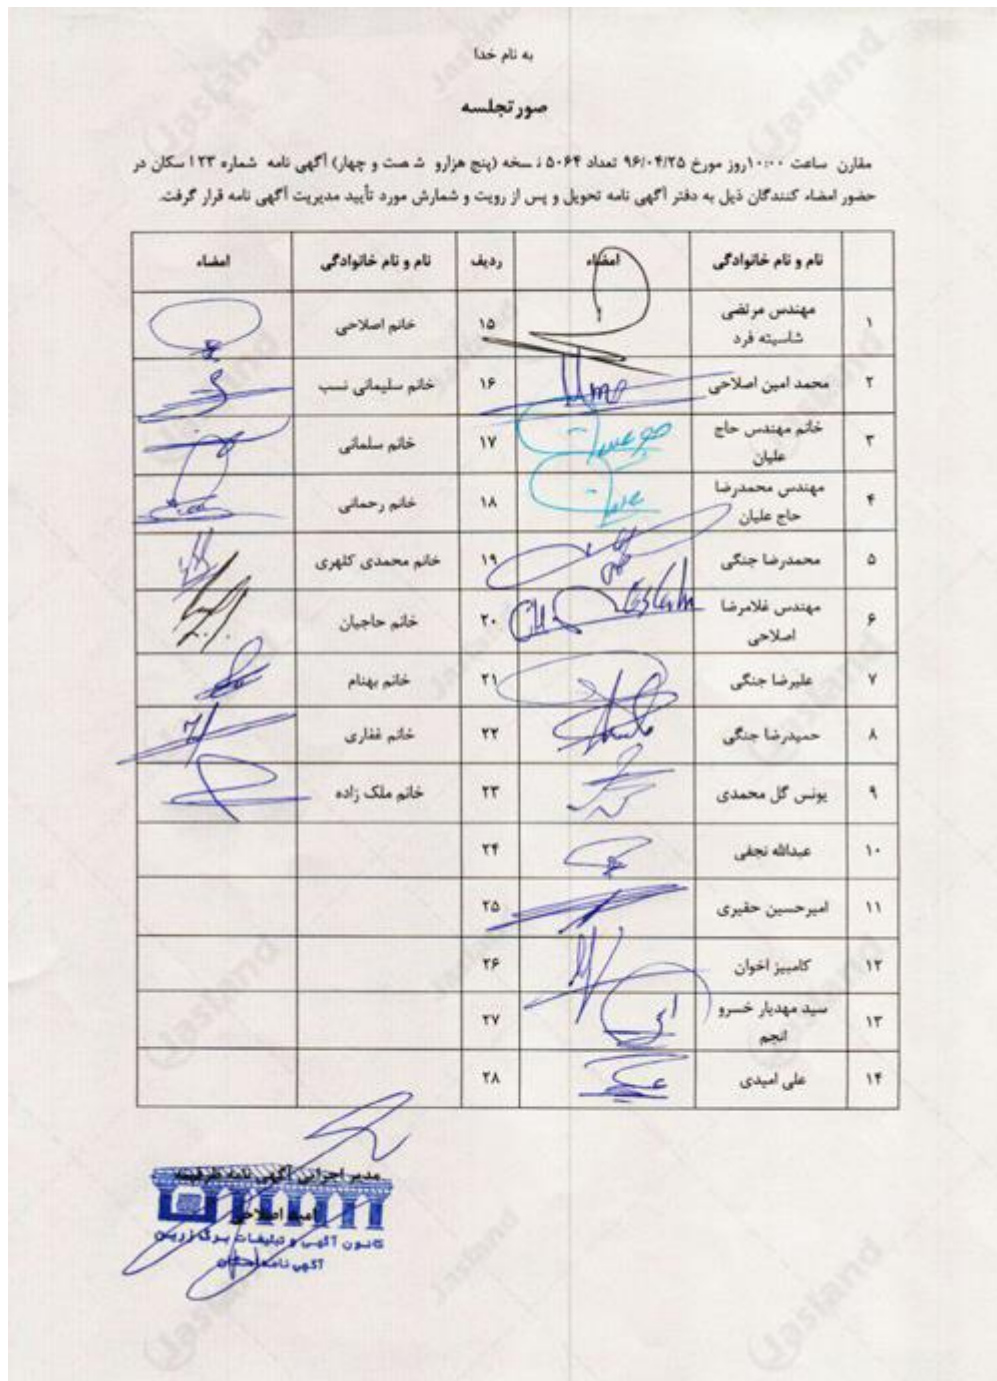 به نام خدا
صورتجلسه
مقارن ساعت ۱۰:۰۰روز مورخ ۹۶/۰۴/۲۵ تعداد ۵۰۶۴ نسخه (پنج هزارو شصت و چهار) آگهی نامه شماره ۱۲۳ سکان در
حضور امضاء کنندگان ذیل به دفتر آگهی نامه تحویل و پس از رویت و شمارش مورد تأیید مدیریت آگهی نامه قرار گرفت.
نام و نام خانوادگی امضاء ردیف نام و نام خانوادگی امضاء
۱ مهندس مرتضی ۱۵ خانم اصلاحی
شاسیته فرد
۲ محمد امین اصلاحی ۱۶ خانم سلیمانی نسب
۳ خانم مهندس حاج ۱۷ خانم سلمانی
علیان
۴ مهندس محمدرضا ۱۸ خانم رحمانی
حاج علیان
۵ محمدرضا جنگی ۱۹ خانم محمدی کلهری
۶ مهندس غلامرضا ۲۰ خانم حاجیان
اصلاحی
۷ علیرضا جنگی ۲۱ خانم بهنام
۸ حمیدرضا جنگی ۲۲ خانم غفاری
۹ یونس گل محمدی ۲۳ خانم ملک زاده
۱۰ عبدالله نجفی ۲۴
۱۱ امیرحسین حقیری ۲۵
۱۲ کامبیز اخوان ۲۶
۱۳ سید مهدیار خسرو ۲۷
انجم
۱۴ علی امیدی ۲۸
مدیر اجرایی آگهی نامه
امید اصلاحی
کانون آگهی و تبلیغات برگ زرین
آگهی نامه
Jasland